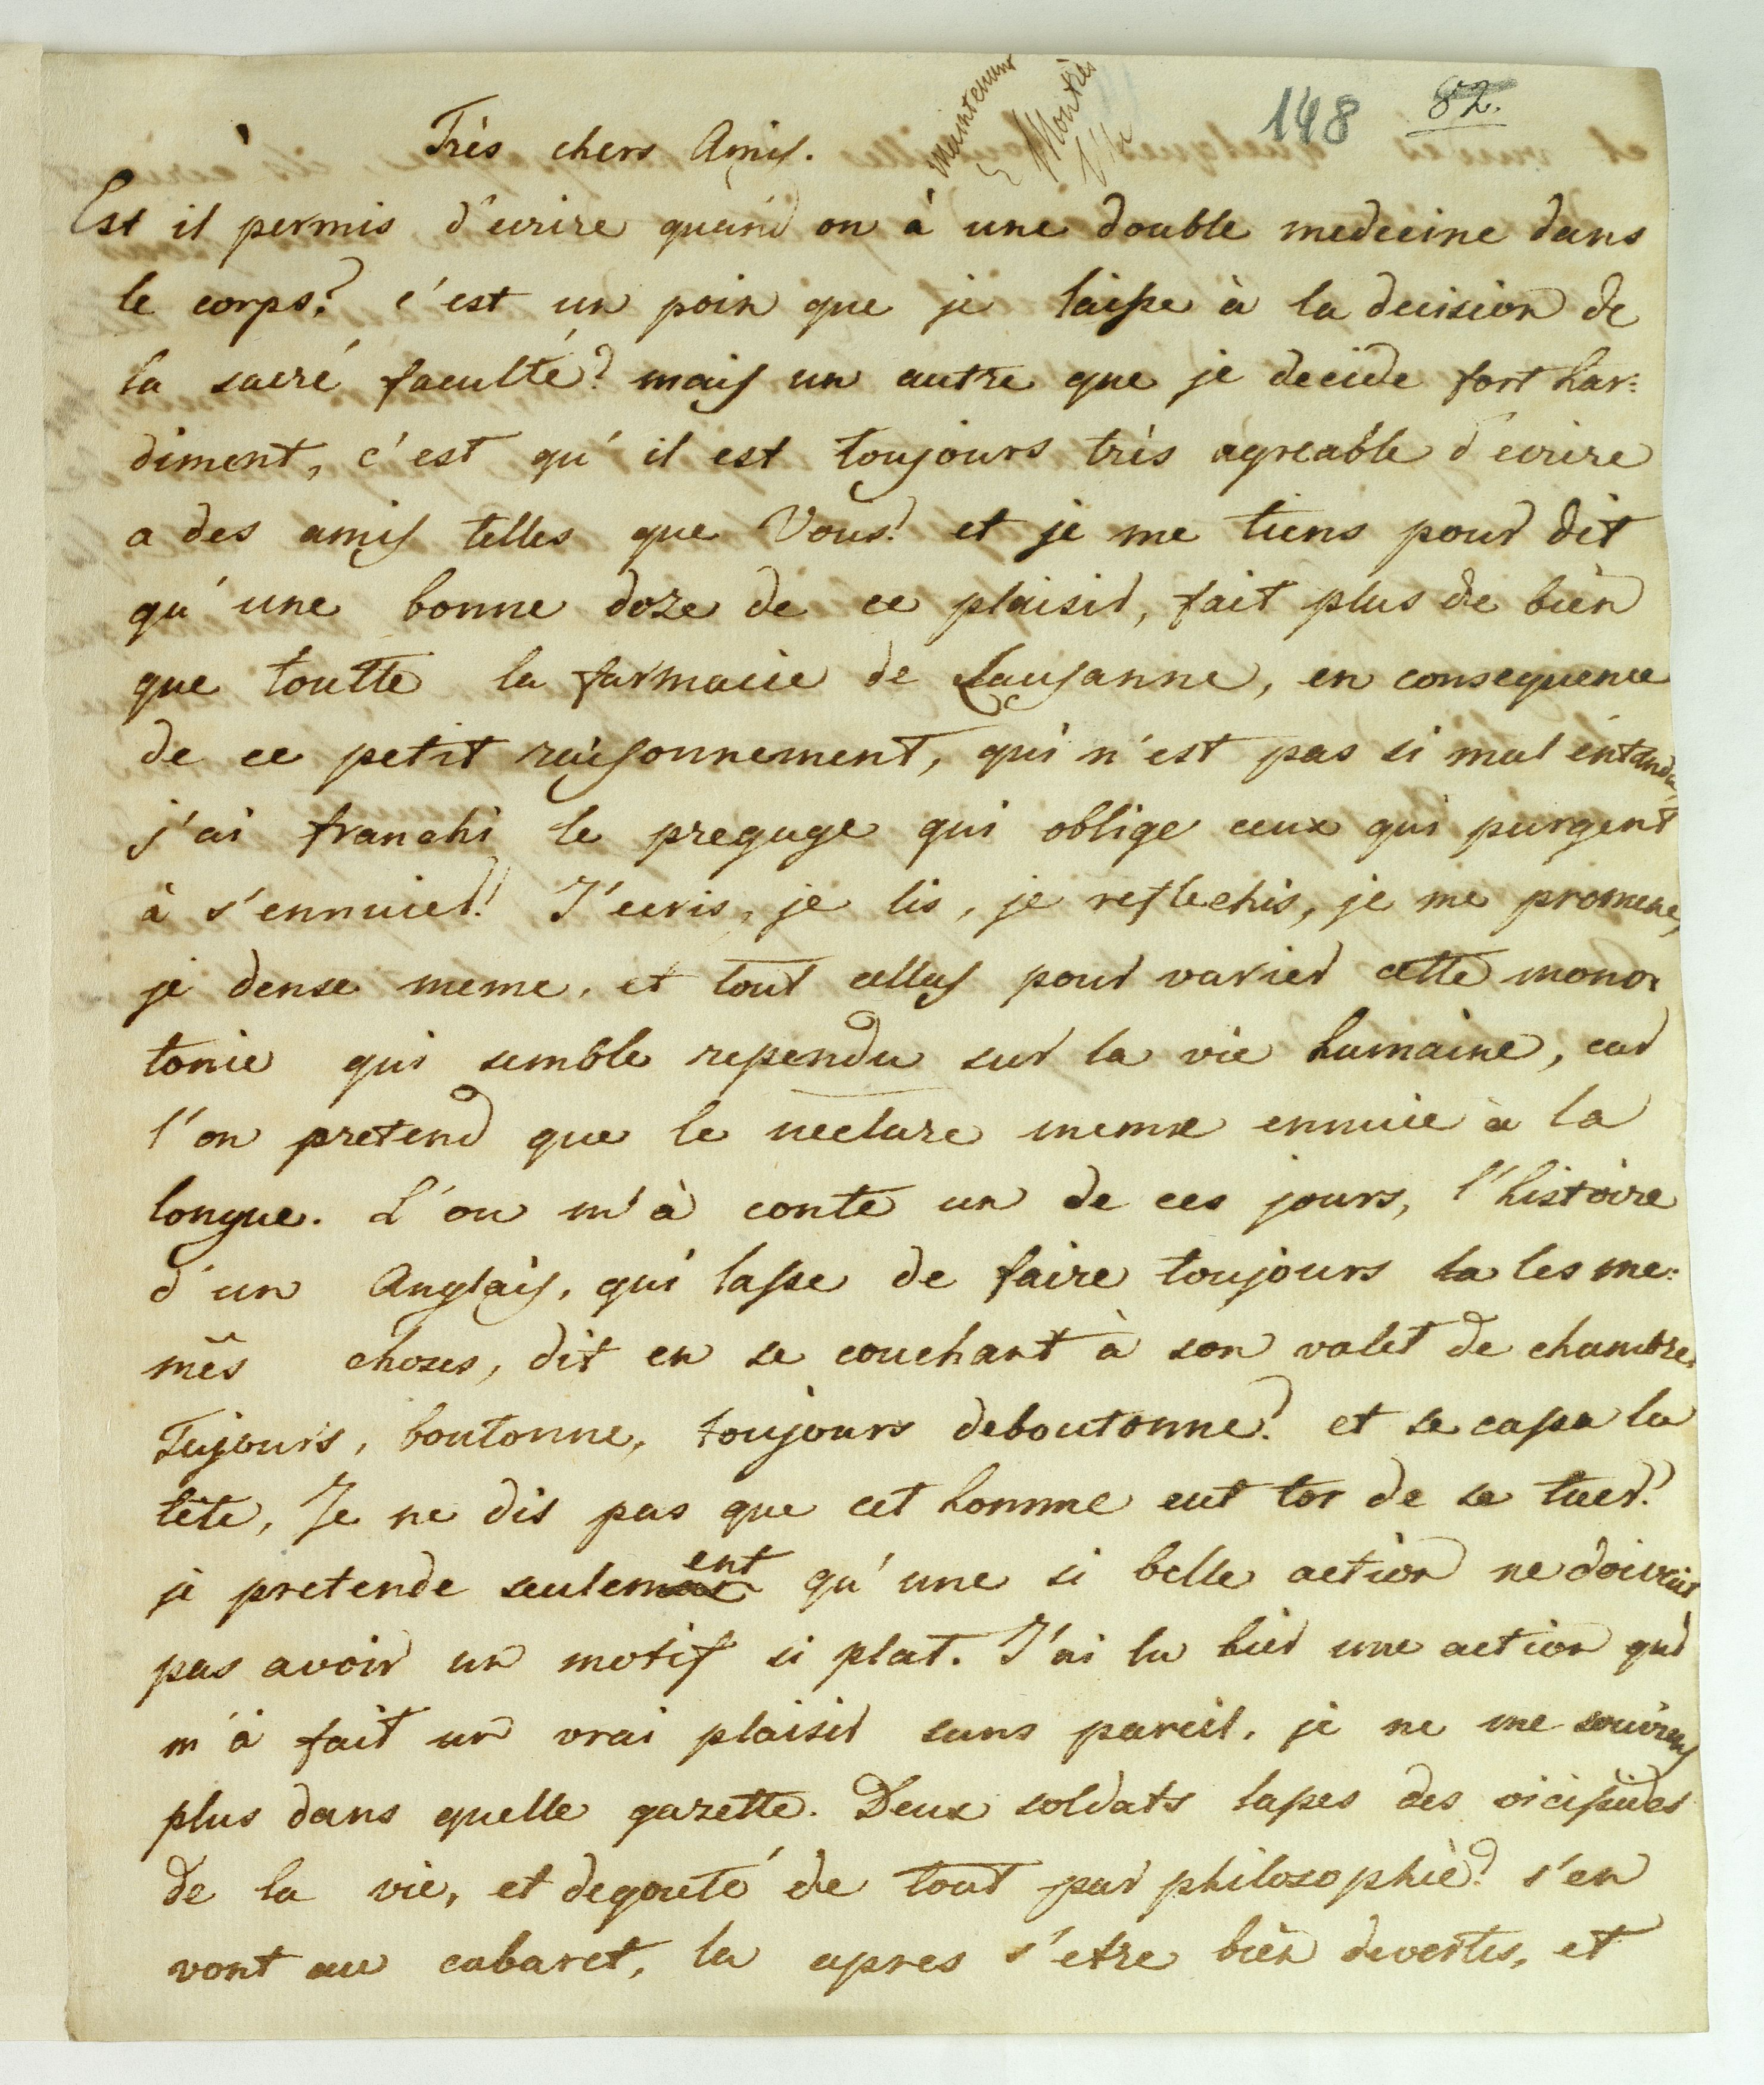 148 82.
maintenant
à Montrés
Très chers Amis.
Est il permis d'ecrire quand on à une double medecine dans
le corps? c'est un poin que je laisse à la decision de
la sacré faculté? mais un autre que je decide fort har:
diment, c'est qu'il est toujours très agreable d'ecrire
a des amis telles que Vous! et je me tiens pour dit
qu'une bonne doze de ce plaisir, fait plus de bien
que toutte la farmacie de Lausanne, en consequence
de ce petit raisonnement, qui n'est pas si mal entandu,
j'ai franchi le preguge qui oblige ceux qui purgent
à s'ennuier! J'ecris, je lis, je reflechis, je me promene,
je dense meme, et tout cellas pour varier cette mono:
tonie qui semble rependu sur la vie humaine, car
l'on pretend que le nectare meme ennuie à la
longue. L'on m'à conte un de ces jours, l'histoire
d'un Anglais, qui lasse de faire toujours la les me:
mês choses, dit en se couchant à son valet de chambre,
Tujours, boutonne, toujours deboutonne! et se cassa la
tête, Je ne dis pas que cet homme eut tor de se tuer!
je pretende seulement qu'une si belle action ne doivroit
pas avoir un motif si plat. J'ai lu hier une action qui
m'à fait un vrai plaisir sans pareil, je ne me souviens
plus dans quelle gazette. Deux soldats lasses des vicissides
de la vie, et degouté de tout par philosophie? s'en
vont au cabaret, la apres s'etre bien devertis, et